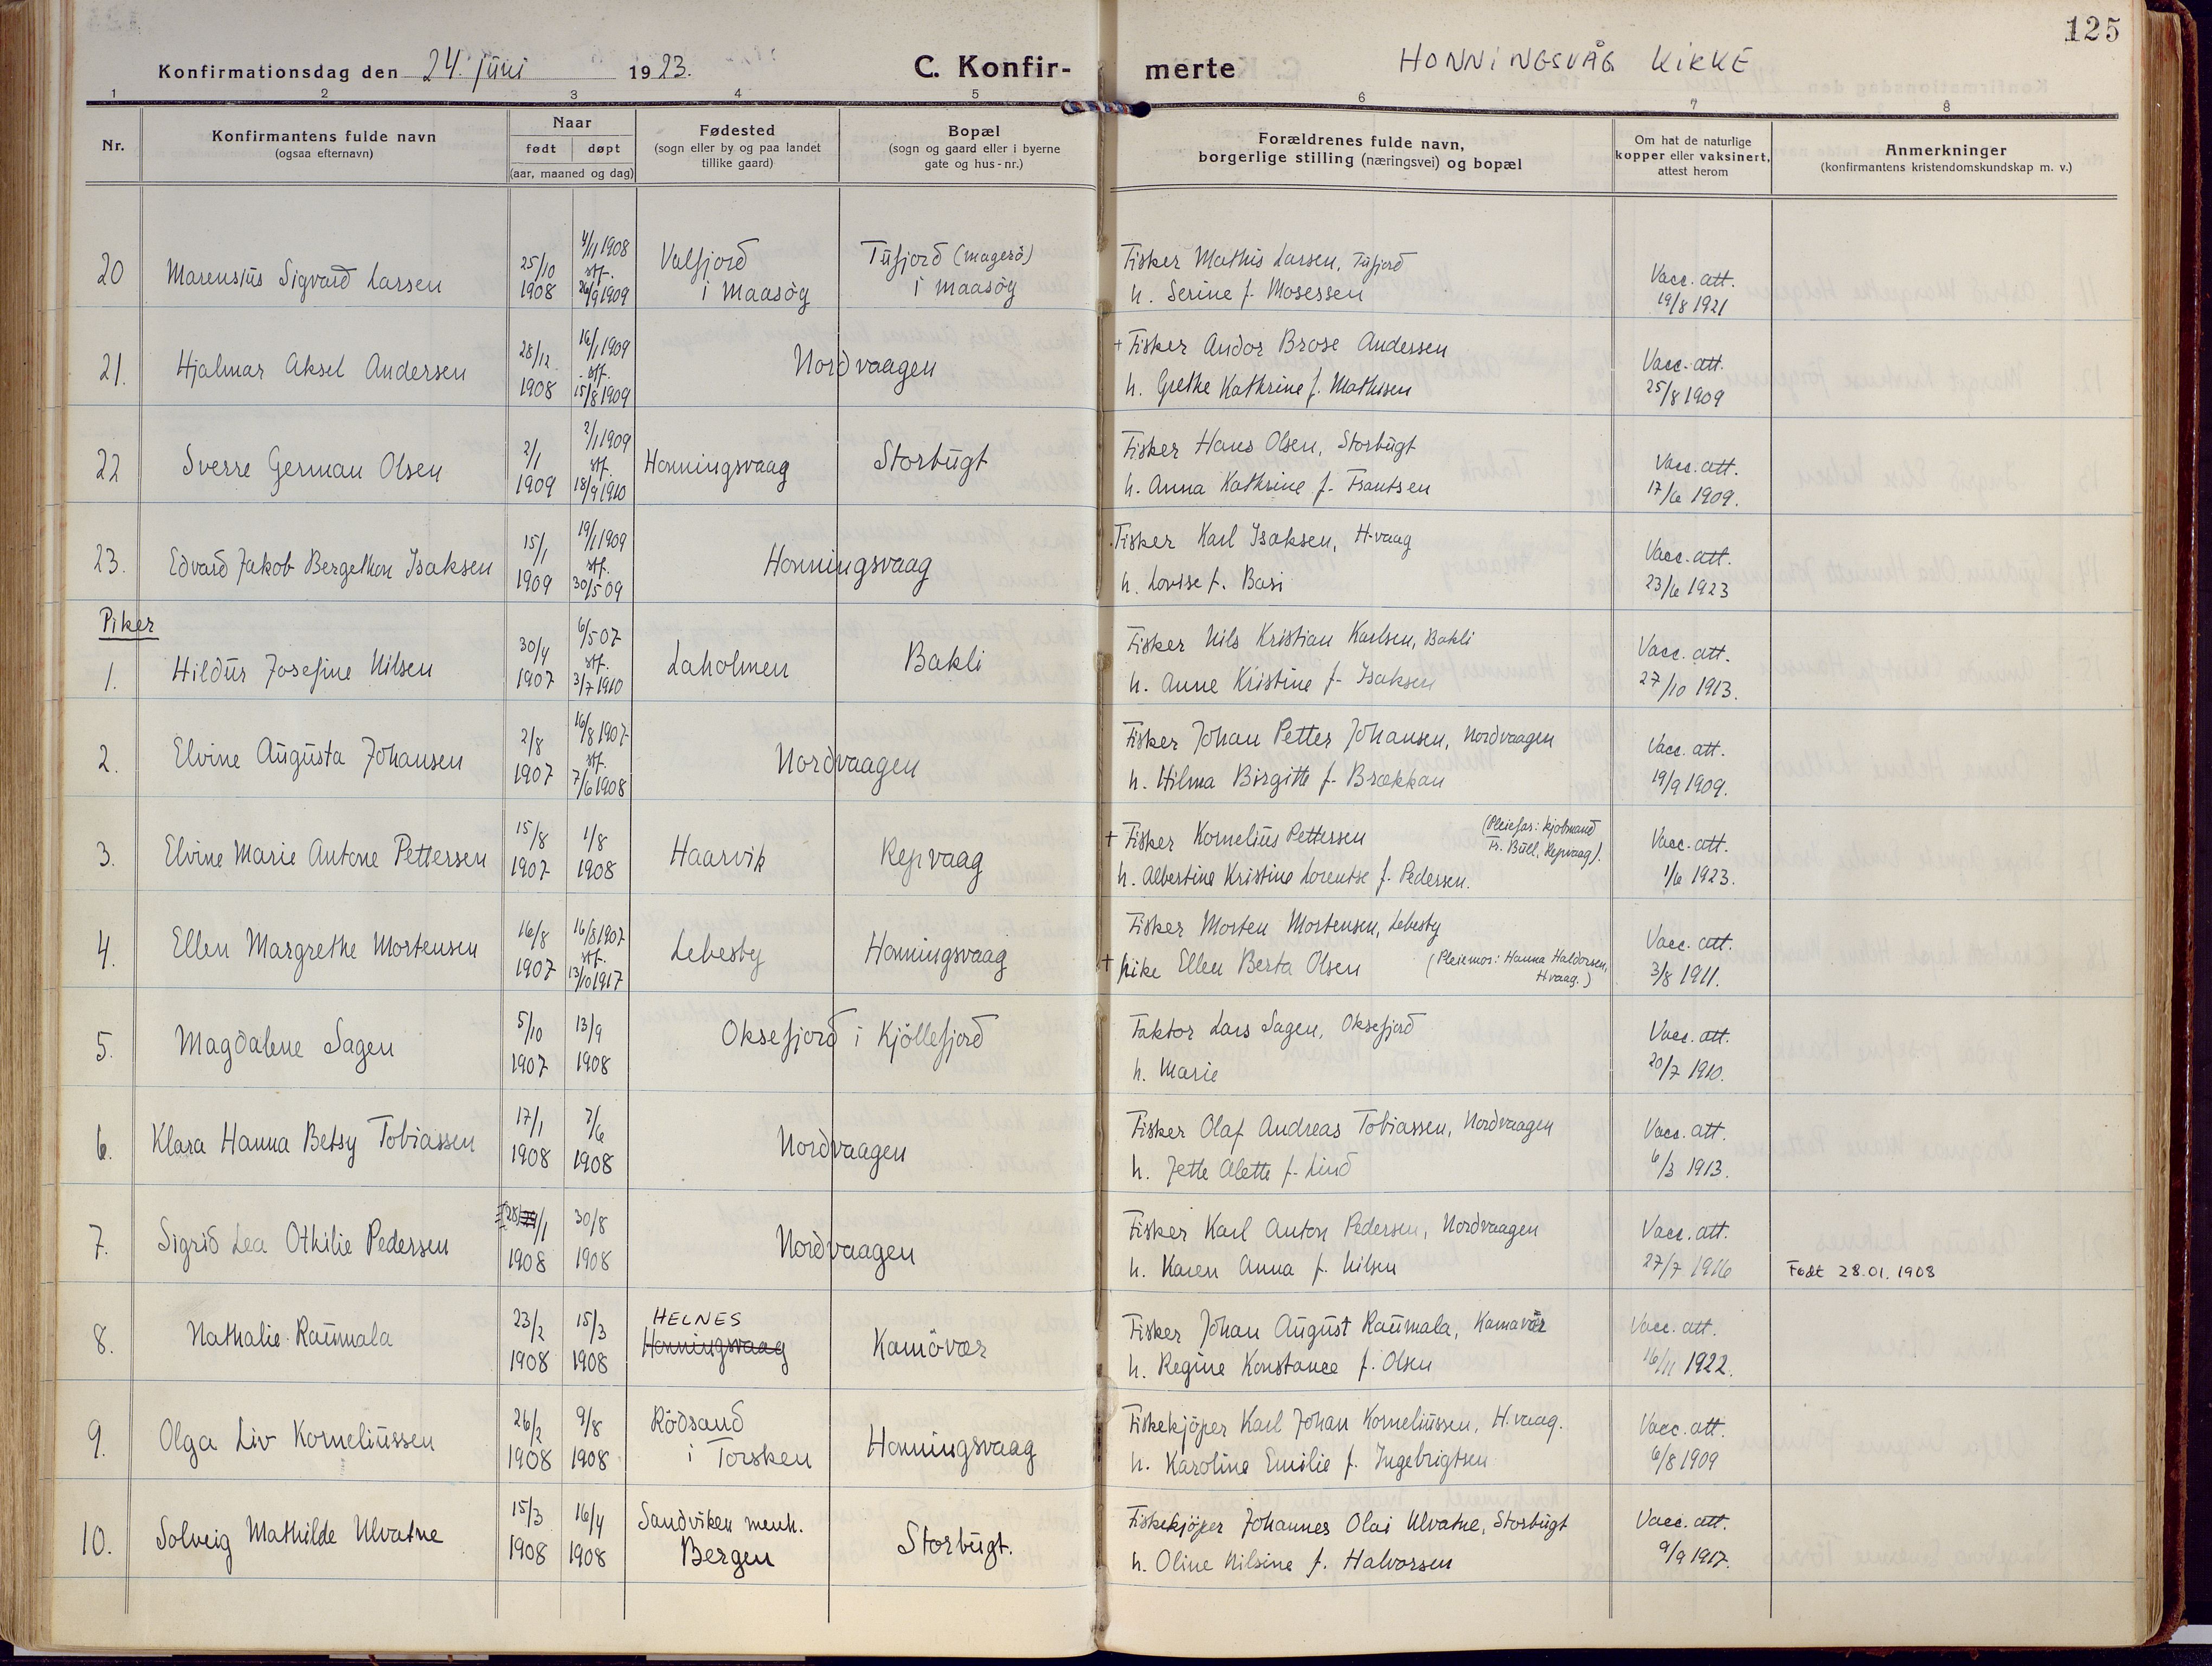 125
Konfirmationsdag den 24. juni 1923.
C. Konfirmerte
HONNINGSVÅG KIRKE
1 2 3 4 5 6 7 8
Nr.
Konfirmantens fulde navn
(ogsaa efternavn)
Naar
født døpt
(aar, maaned og dag)
Fødested
(sogn eller by og paa landet
tillike gaard)
Bopæl
(sogn og gaard eller i byerne
gate og hus-nr.)
Forældrenes fulde navn,
borgerlige stilling (næringsvei) og bopæl
Om hat de naturlige
kopper eller vaksinert,
attest herom
Anmerkninger
(konfirmantens kristendomskundskap m. v.)
20 Marensius Sigvard Larsen
25/10 1908
4/11 1908
stf.
26/9 1909
Valfjord
i Maasöy
Tufjord (Magerö)
i Maasöy
Fisker Mathis Larsen, Tufjord
h. Serine f. Mosessen
Vacc. att.
19/8 1921
21. Hjalmar Aksel Andersen
28/12 1908
16/1 1909
stf.
15/8 1909
Nordvaagen
+ Fisker Andor Brose Andersen
h. Grethe Kathrine f. Mathisen
Vacc. att.
25/8 1909
22 Sverre German Olsen
2/1 1909
2/1 1909
stf.
18/9 1910
Honningsvaag
Storbugt
Fisker Hans Olsen, Storbugt
h. Anna Kathrine f. Frantsen
Vacc. att.
17/6 1909.
23. Edvard Jakob Bergethon Isaksen
15/1 1909
19/1 1909
stf.
30/5 09
Honningsvaag
Fisker Karl Isaksen, H-vaag
h. Lovise f. Basi
Vacc. att.
23/6 1923
Piker
1. Hildur Josefine Nilsen
30/4 1907
6/5 07
stf.
3/7 1910
Laholmen
Bakli
Fisker Nils Kristian Karlsen, Bakli
h. Anne Kristine f. Isaksen
Vacc. att.
27/10 1913.
2. Elvine Augusta Johansen
2/8 1907
16/8 1907
stf.
7/6 1908
Nordvaagen
Fisker Johan Petter Johansen, Nordvaagen
h. Hilma Birgitte f. Brækkan
Vacc. att.
19/9 1909.
3. Elvine Marie Antone Pettersen
15/8 1907
1/8 1908
Haarvik
Repvaag
+ Fisker Kornelius Pettersen (Pleiefar: kjøbmand
Fr. Bull, Repvaag).
h. Albertine Kristine Lorentse f. Pedersen.
Vacc. att.
1/6 1923.
4. Ellen Margrethe Mortensen
16/8 1907
16/8 1907
stf.
13/10 1917
Lebesby
Honningsvaag
Fisker Morten Mortensen, Lebesby
+ pike Ellen Berta Olsen (Pleiemor: Hanna Haldorsen,
H.vaag.)
Vacc. att.
3/8 1911.
5. Magdalene Sagen
5/10 1907
13/9 1908
Oksefjord i Kjöllefjord
Faktor Lars Sagen, Oksefjord
h. Marie
Vacc. att.
20/7 1910.
6. Klara Hanna Betsy Tobiassen
17/1 1908
7/6 1908
Nordvaagen
Fisker Olaf Andreas Tobiassen, Nordvaagen
h. Jette Alette f. Lind
Vacc. att.
6/3 1913.
7. Sigrid Lea Othilie Pedersen
28/1 1908
30/8 1908
Nordvaagen
Fisker Karl Anton Pedersen, Nordvaagen
h. Karen Anna f. Nilsen
Vacc. att.
27/7 1916
Født 28.01.1908
8. Nathalie Raumala
23/2 1908
15/3 1908
HELNES
Honningsvaag
Kamövær
Fisker Johan August Raumala, Kamavær
h. Regine Konstance f. Olsen
Vacc. att.
16/11 1922.
9. Olga Liv Korneliussen
26/2 1908
9/8 1908
Rödsand
i Torsken
Honningsvaag
Fiskekjöper Karl Johan Korneliussen, H.vaag.
h. Karoline Emilie f. Ingebrigtsen
Vacc. att.
6/8 1909
10. Solveig Mathilde Ulvatne
15/3 1908
16/4 1908
Sandviken menh.
Bergen
Storbugt.
Fiskekjöper Johannes Olai Ulvatne, Storbugt
h. Oline Nilsine f. Halvorsen
Vacc. att.
9/9 1917.